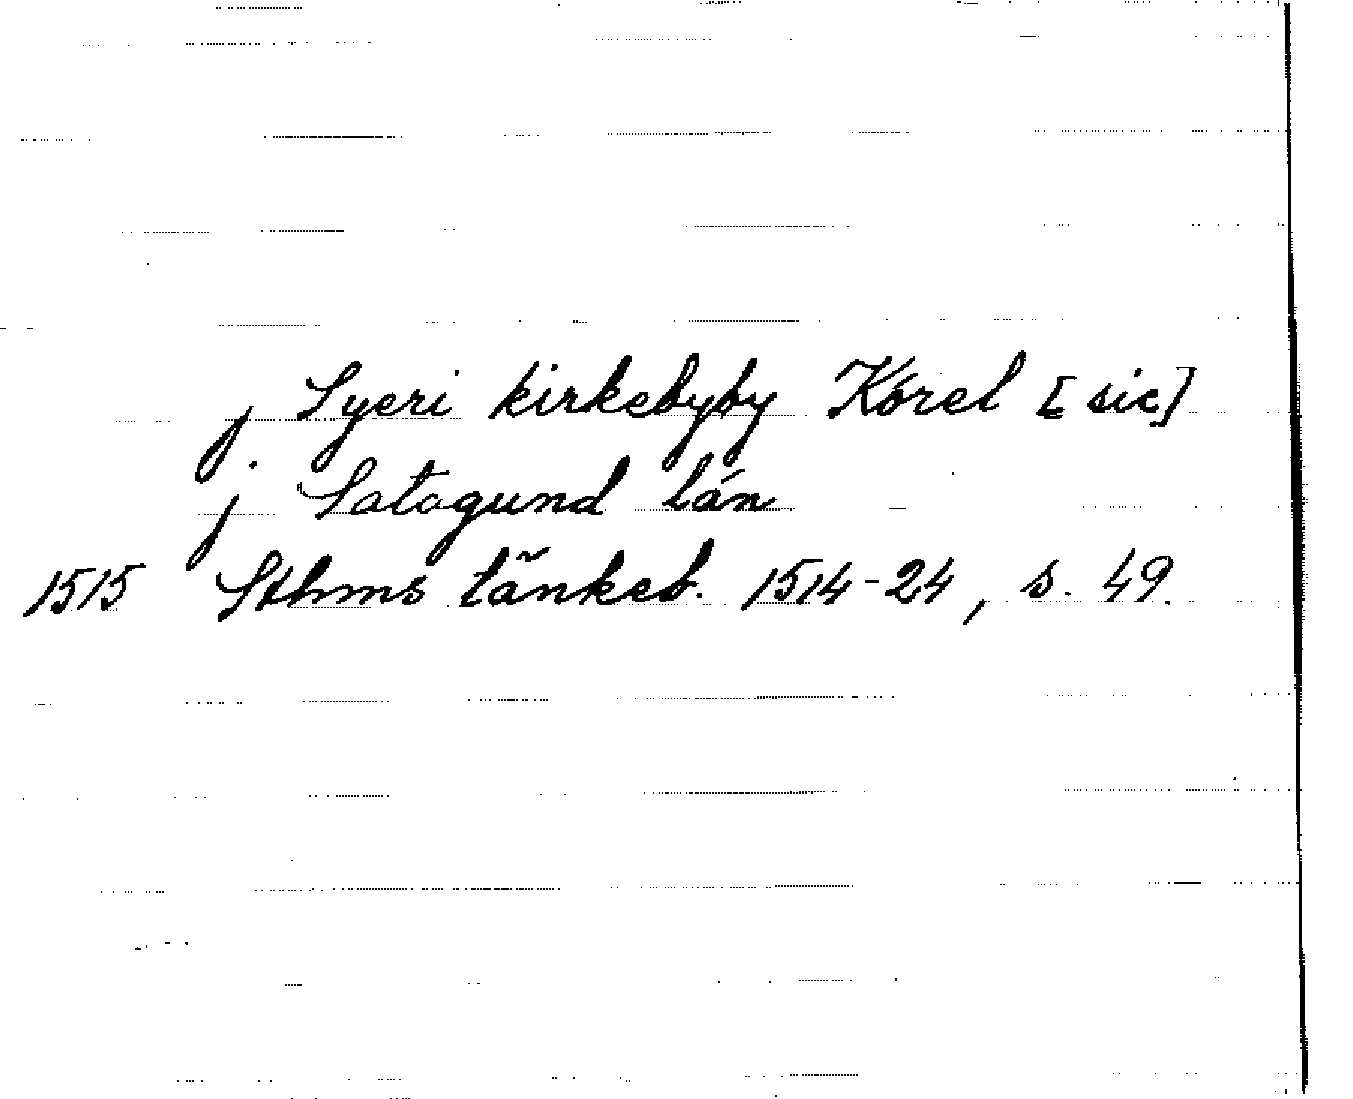 j. Syeri kirkebyby Kórel [sic]
j Satagund lán
1515 Sthms tänkeb. 1514-24, s. 49.